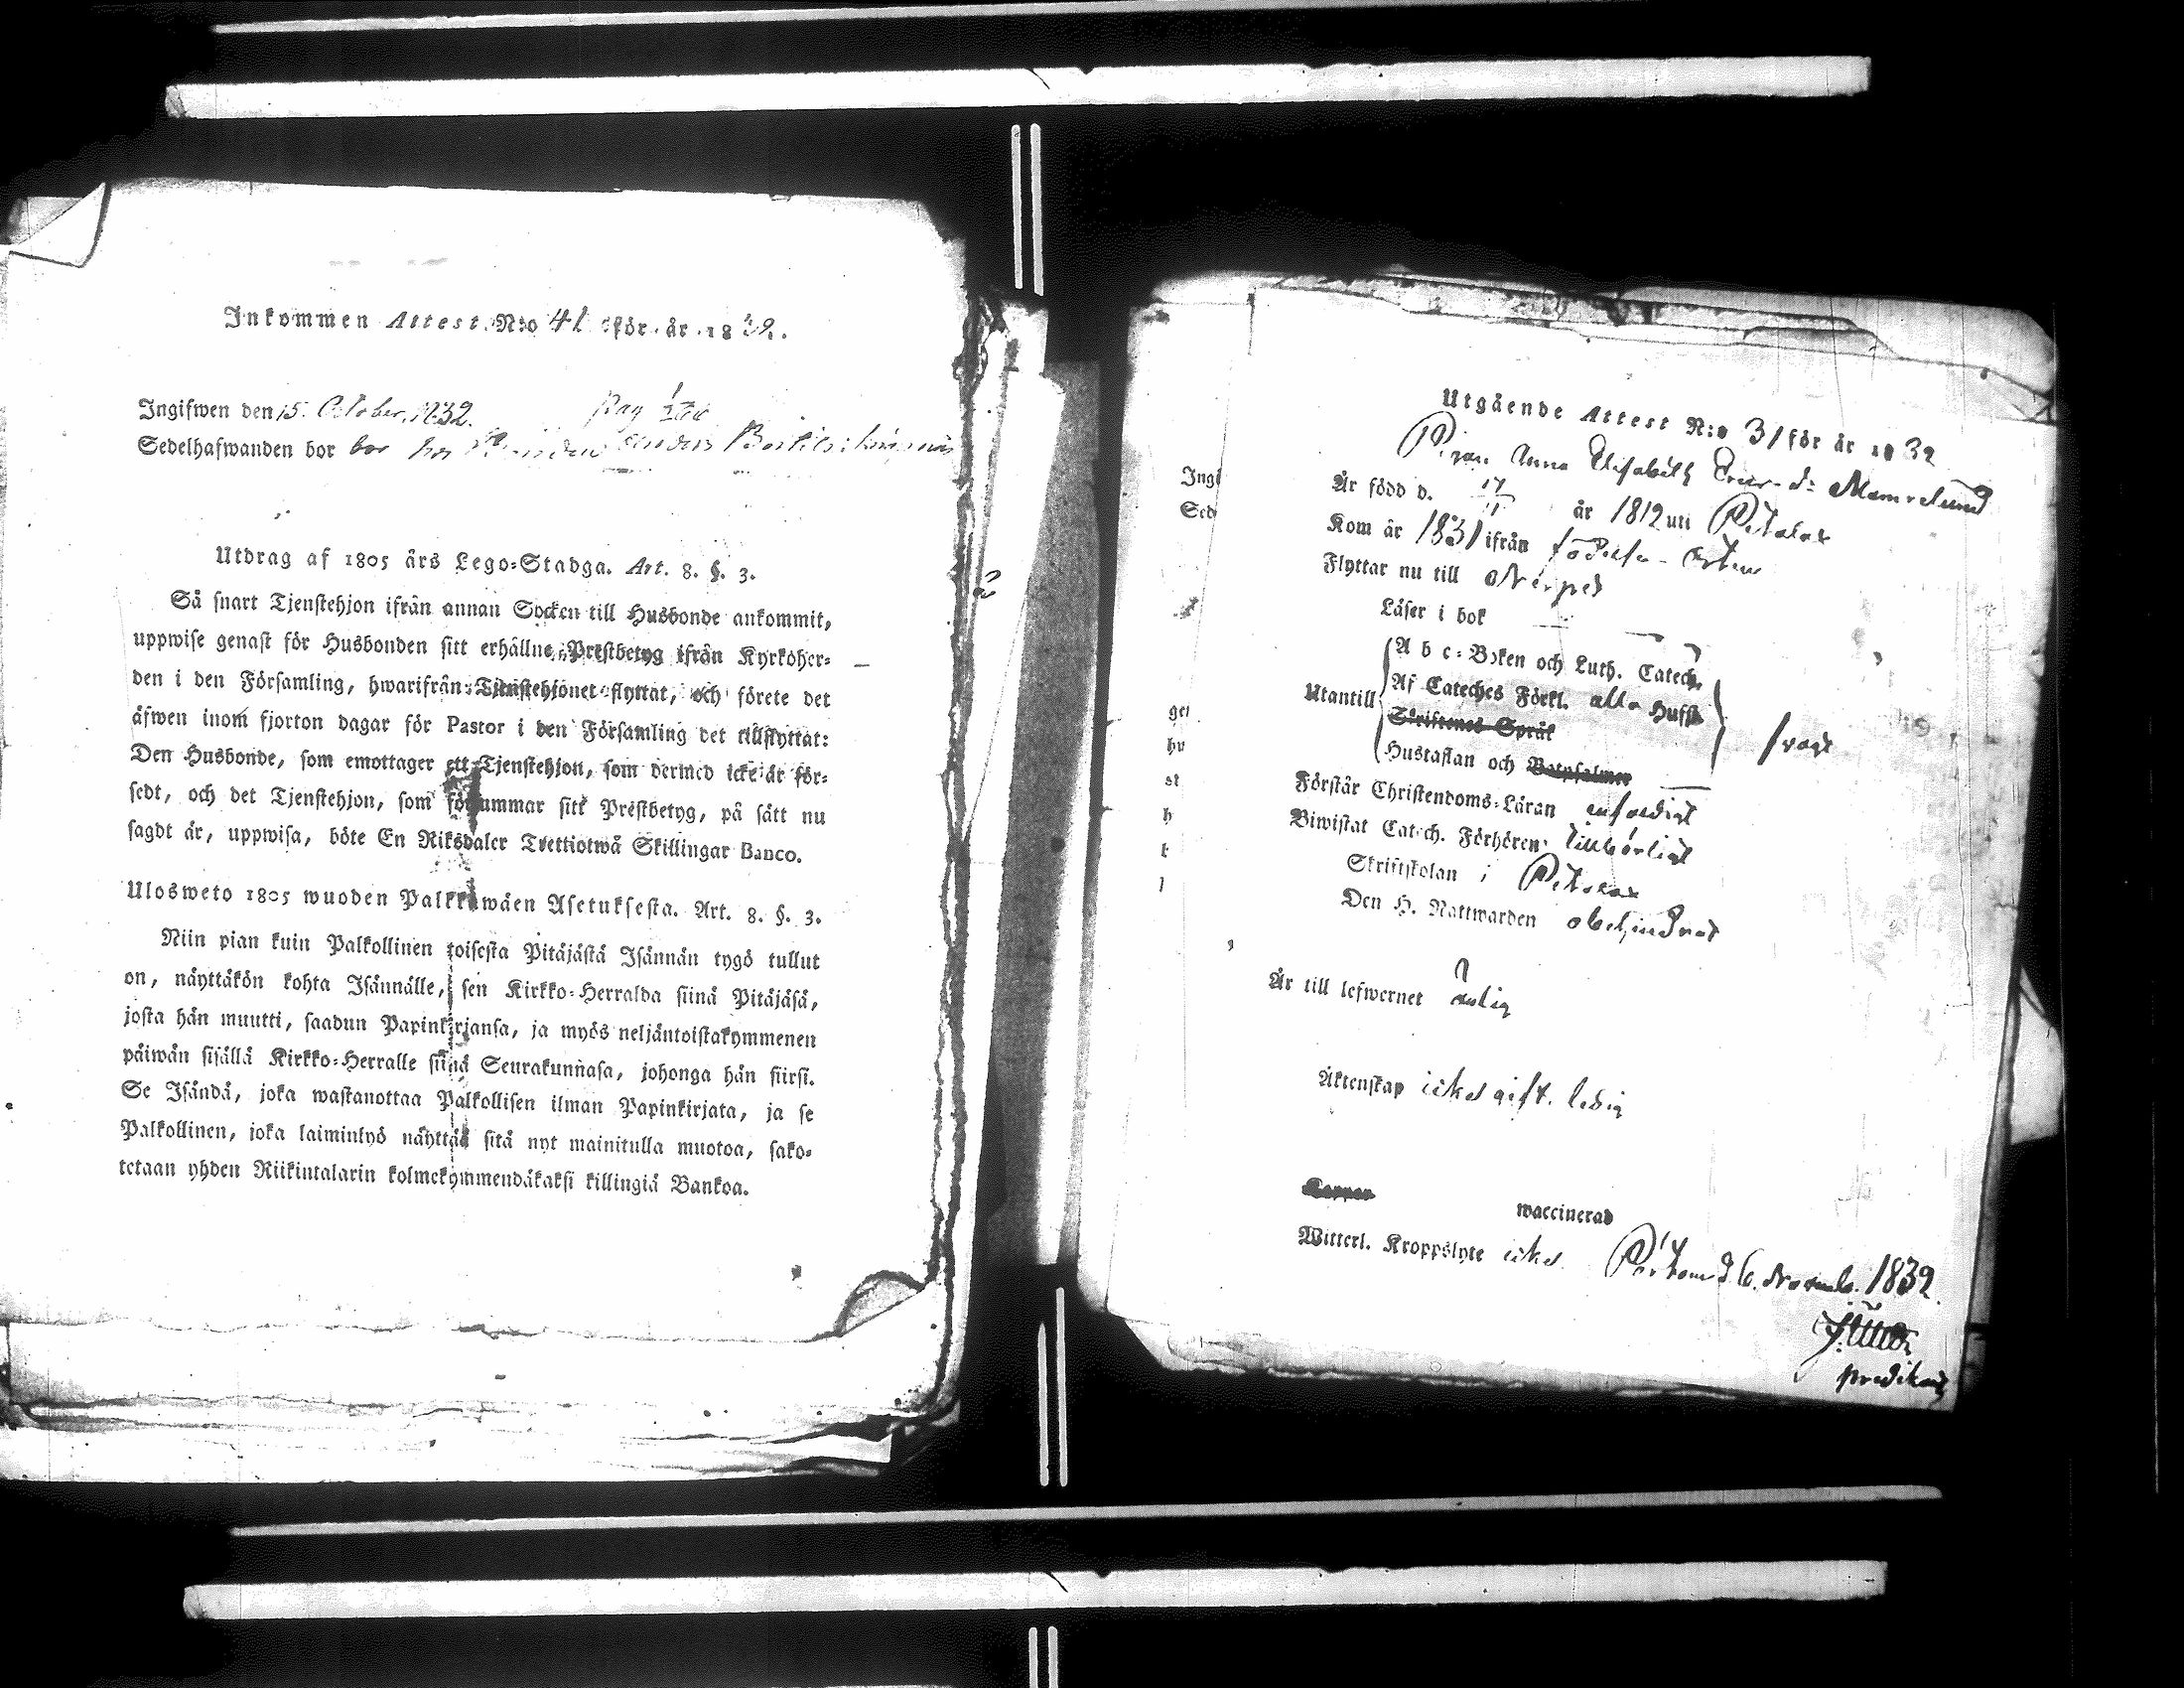 Inkommen Attest N:o 41 för år 1832.
Ingifwen den 15. October 1832. Pag
Sedelhafwanden bor bor hos Bonden
Utdrag af 1805 års Lego-Stadga. Art. 8. §. 3.
Så snart Tjenstehjon ifrån annan Socken till Husbonde ankommit,
uppwise genast för Husbonden sitt erhållne Prestbetyg ifrån Kyrkoher-
den i den Församling, hwarifrån Tjenstehjonet flyttat, och förete det
äfwen inom fjorton dagar för Pastor i den Församling det tillflyttat:
Den Husbonde, som emottager ett Tjenstehjon, som dermed icke är för-
sedt, och det Tjenstehjon, som försummar sitt Prestbetyg, på sätt nu
sagdt är, uppwisa, böte En Riksdaler Trettiotwå Skillingar Banco.
Ulosweto 1805 wuoden Palkkawäen Asetuksesta. Art. 8. §. 3.
Niin pian kuin Palkollinen toisesta Pitäjästä Isännän tygö tullut
on, näyttäkön kohta Isännälle, sen Kirkko-Herralda siinä Pitäjäsä,
josta hän muutti, saadun Papinkirjansa, ja myös neljäntoistakymmenen
päiwän sisällä Kirkko-Herralle siinä Seurakunnasa, johonga hän siirsi.
Se Isändä, joka wastanottaa Palkollisen ilman Papinkirjata, ja se
Palkollinen, joka laiminlyö näyttää sitä nyt mainitulla muotoa, sako-
tetaan yhden Riikintalarin kolmekymmendäkaksi killingiä Bankoa.
Ingi
Sed
ge
hu
st
h
Utgående Attest N:o 31 för år 1832
Pigan Anna Elisabeth Ersd:r
Är född d. 17/11 år 1812 uti Petalax
Kom år 1831 ifrån födelse-orten
Flyttar nu till Nerpes
Läser i bok
A b c-Boken och Luth. Catech.
Utantill Af Cateches Förkl. alla Hufst
Skriftenes Språk
Hustaflan och Botpsalmer
svagt
Förstår Christendoms-Läran enfaldigt
Biwistat Catech. Förhören tillbörligt
Skriftskolan i Petalax
Den H. Nattwarden obehindrad
Är till lefwernet ärlig
Äktenskap icke gift. ledig
Koppor waccinerad
Witterl. Kroppslyte icke. Pörtom d. 6. Novemb. 1832.
predikant